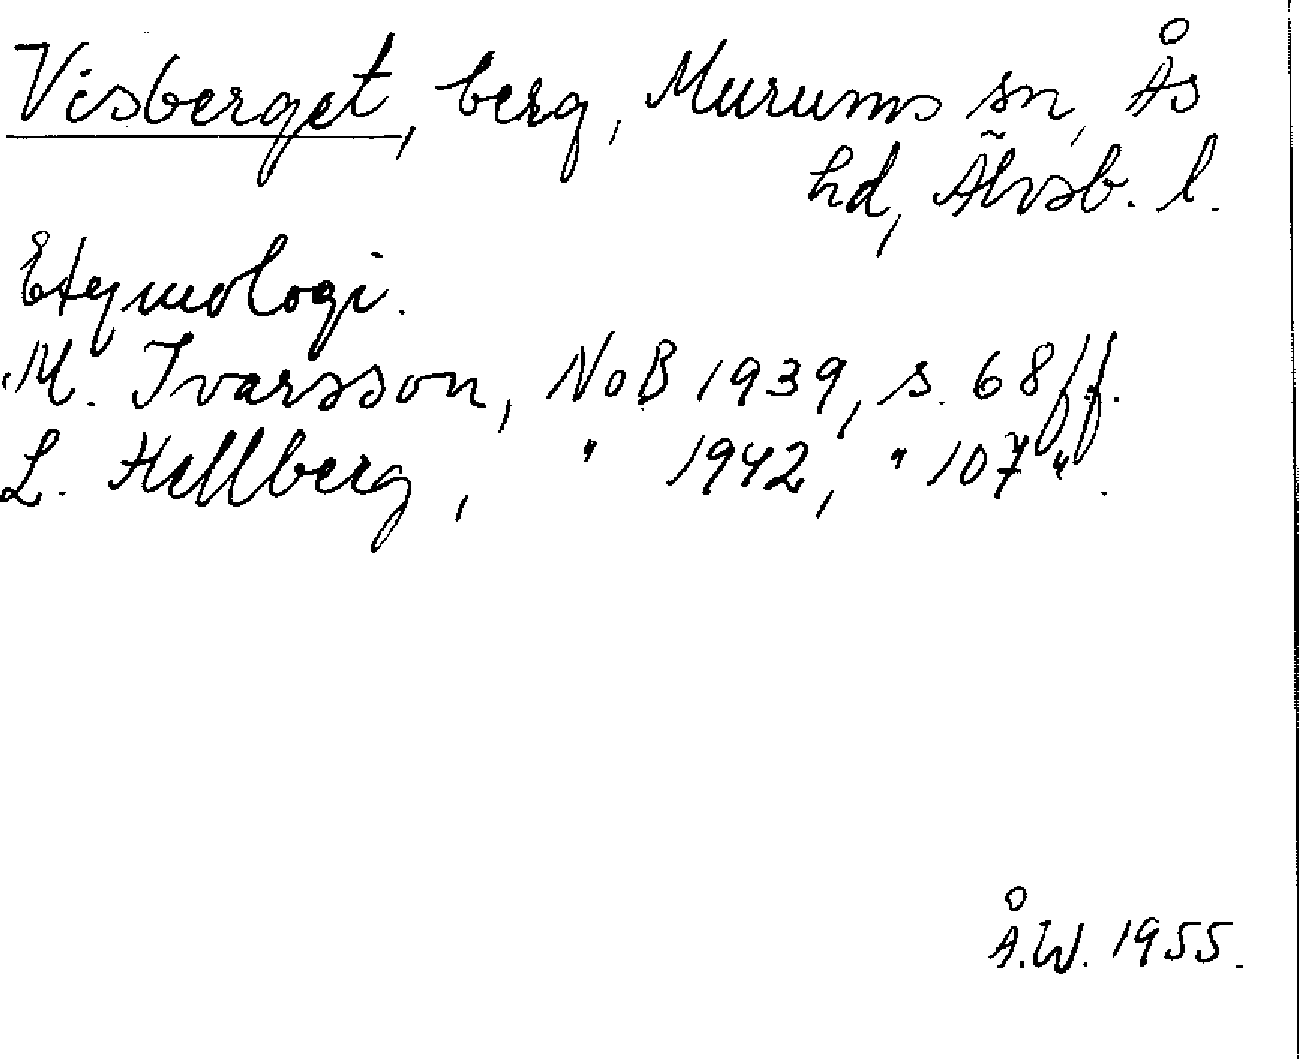 Visberget, berg, Murums sn, Ås
hd, Älvsb. l.
Etymologi.
M. Ivarsson, NoB 1939, s. 68 ff.
L. Hellberg, " 1942, " 107 ".
Å.W. 1955.